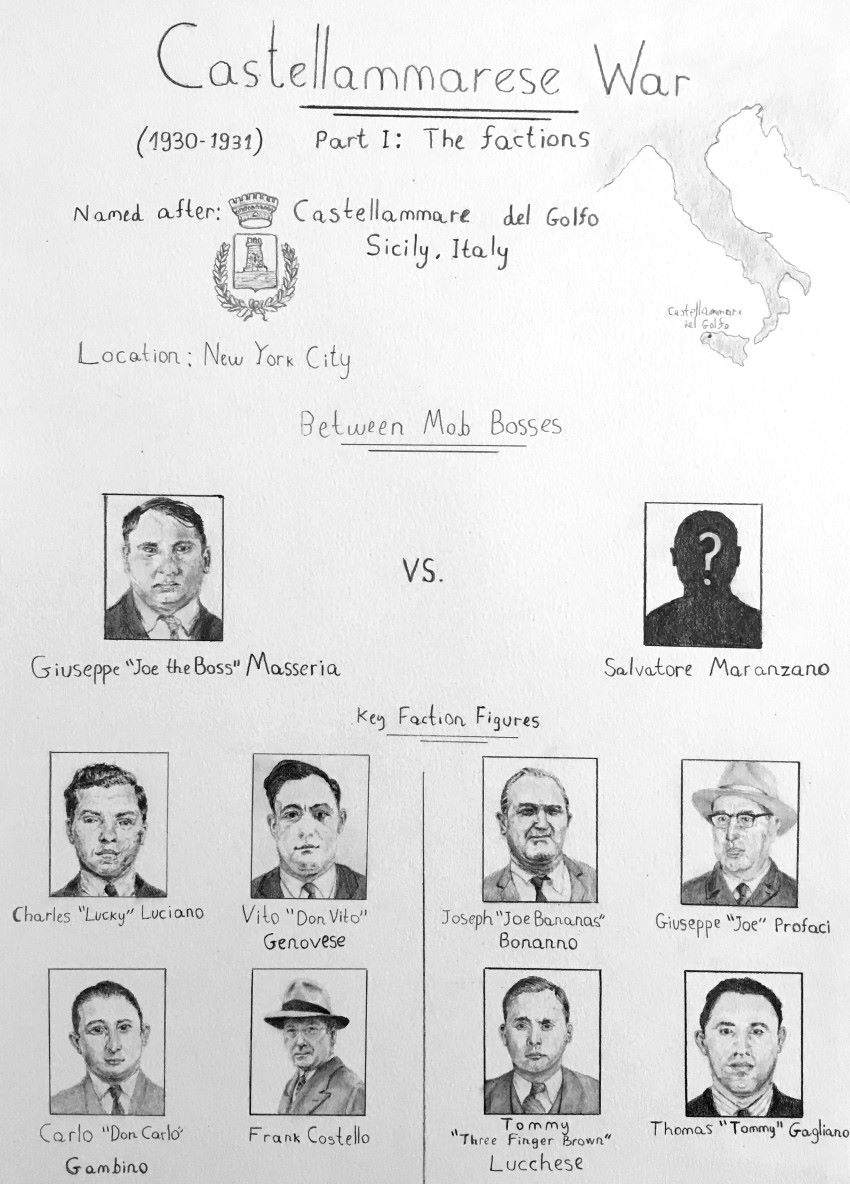 Castellammarese War
(1930-1931) Part I: The factions
Named after: Castellammare del Golfo
Sicily, Italy
Castellammare
del Golfo
Location: New York City
Between Mob Bosses
?
VS.
Giuseppe "Joe the Boss" Masseria
Salvatore Maranzano
Key Faction Figures
Charles "Lucky" Luciano
Vito "Don Vito"
Genovese
Joseph "Joe Bananas"
Bonanno
Giuseppe "Joe" Profaci
Carlo "Don Carlo"
Gambino
Frank Costello
Tommy
"Three Finger Brown"
Lucchese
Thomas "Tommy" Gagliano